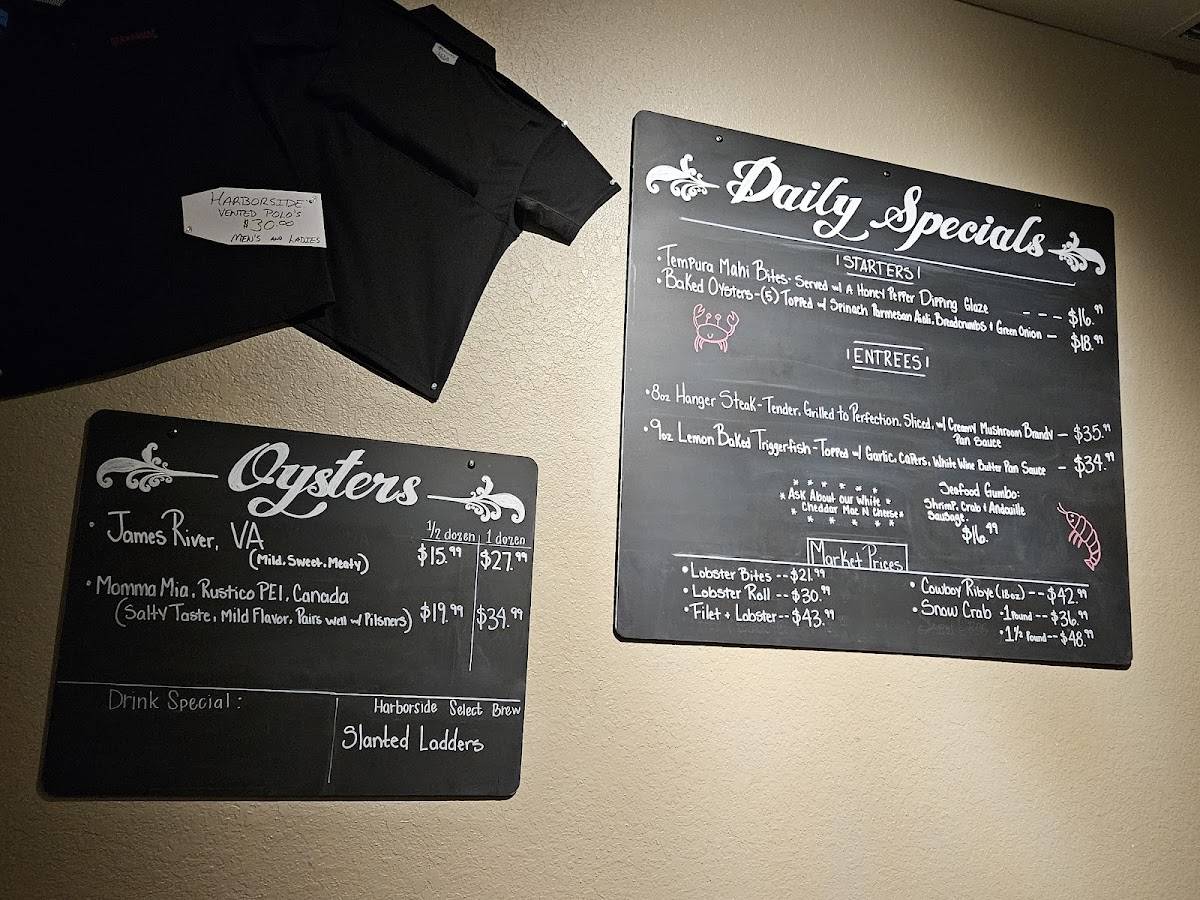 HARBORSIDE
VENTED POLO'S
$30.00
MEN'S AND LADIES
Oysters
1/2 dozen | 1 dozen
• James River, VA
(Mild, Sweet, Meaty) $15.99 $27.99
• Momma Mia, Rustico PEI, Canada
(Salty Taste, Mild Flavor, Pairs well w/ Pilsners) $19.99 $34.99
Drink Special:
Harborside Select Brew
Slanted Ladders
Daily Specials
STARTERS
• Tempura Mahi Bites - Served w/ A Honey Pepper Dipping Glaze - - - $16.99
• Baked Oysters - (5) Topped w/ Spinach Parmesan Aioli, Breadcrumbs & Green Onion - $18.99
ENTREES
• 8oz Hanger Steak - Tender, Grilled to Perfection, Sliced, w/ Creamy Mushroom Brandy - $35.99
Pan Sauce
• 9oz Lemon Baked Triggerfish - Topped w/ Garlic, Capers, White Wine Butter Pan Sauce - $34.99
* Ask About our White *
* Cheddar Mac N Cheese *
Seafood Gumbo:
Shrimp, Crab & Andouille
Sausage.
$16.99
Market Prices
• Lobster Bites -- $21.99
• Lobster Roll -- $30.99
• Filet + Lobster -- $43.99
• Cowboy Ribye (18oz) -- $42.99
• Snow Crab • 1 Pound -- $36.99
• 1 1/2 Pound -- $48.99